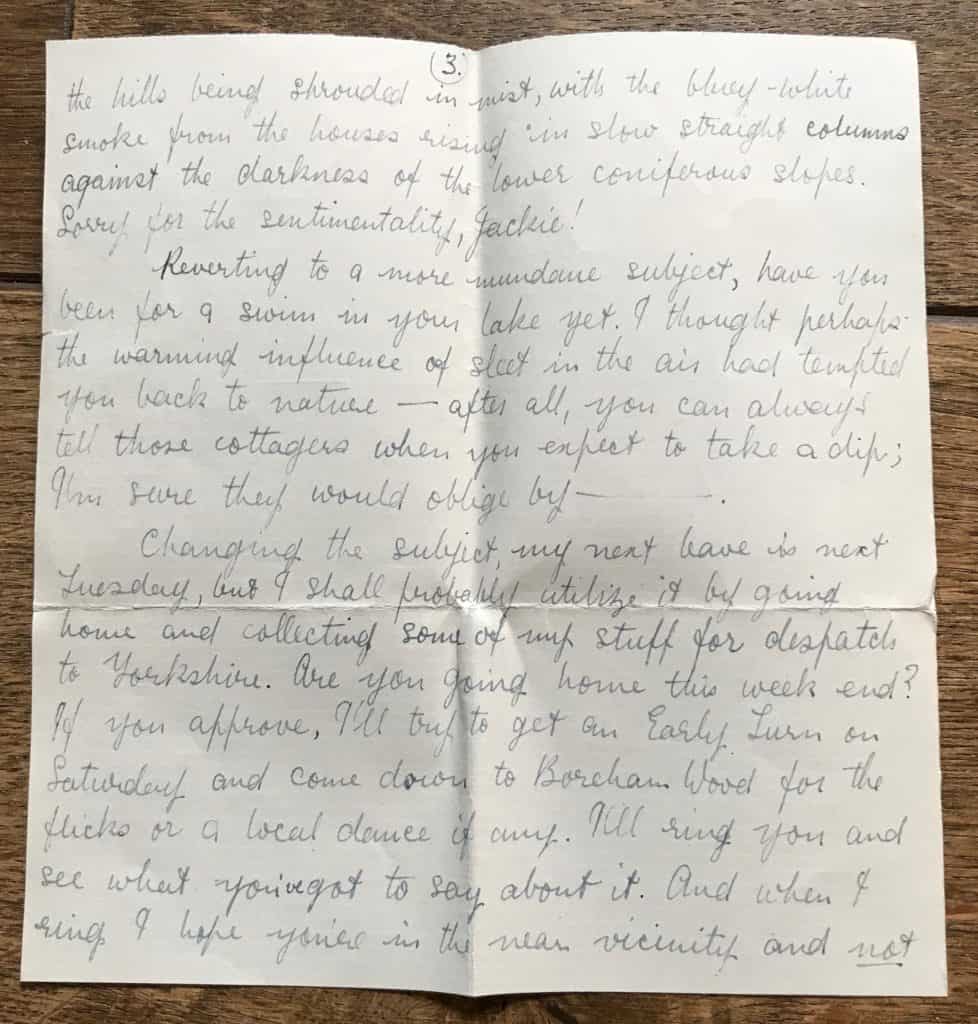 3.
the hills being shrouded in mist, with the bluey-white
smoke from the houses rising in slow straight columns
against the darkness of the lower coniferous slopes.
Sorry for the sentimentality, Jackie!
Reverting to a more mundane subject, have you
been for a swim in your lake yet. I thought perhaps
the warming influence of sleet in the air had tempted
you back to nature — after all, you can always
tell those cottagers when you expect to take a dip;
I'm sure they would oblige by ———.
Changing the subject, my next leave is next
Tuesday, but I shall probably utilize it by going
home and collecting some of my stuff for despatch
to Yorkshire. Are you going home this week end?
If you approve, I'll try to get an Early Turn on
Saturday and come down to Boreham Wood for the
flicks or a local dance if any. I'll ring you and
see what you've got to say about it. And when I
ring I hope you're in the near vicinity and not